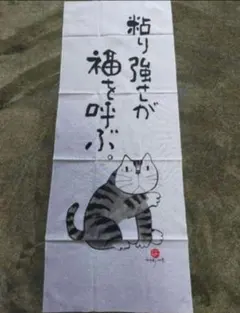 粘り強さが
福を呼ぶ。